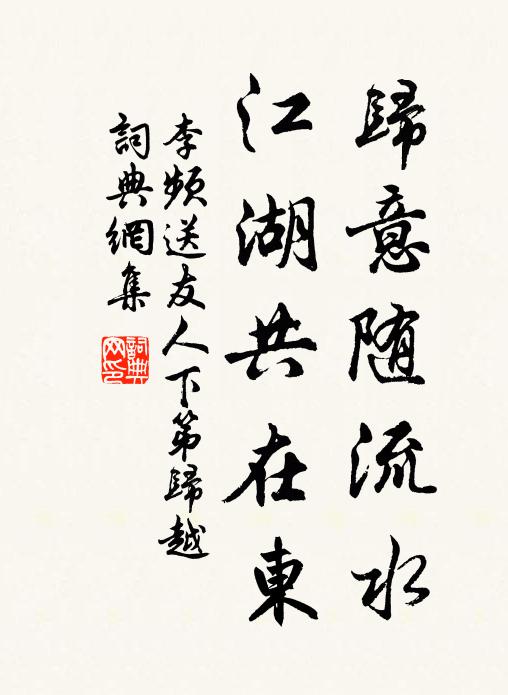 歸意随流水
江湖共在東
李频送友人下第歸越
詞典網集
詞典网印